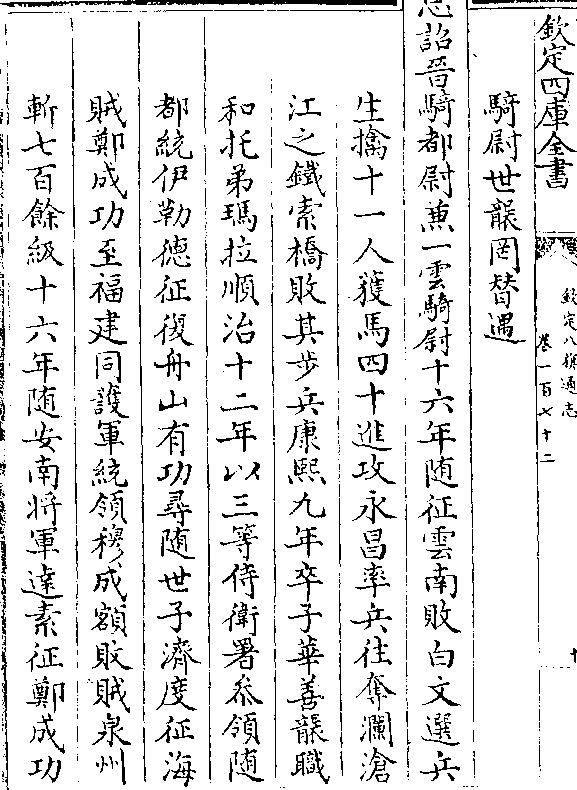 欽定四庫全書
欽定八旗通志
卷一百七十二
騎尉世襲罔替遇
恩詔晉騎都尉兼一雲騎尉十六年随征雲南敗白文選兵
生擒十一人獲馬四十進攻永昌率兵往奪瀾滄
江之鐵索橋敗其步兵康熙九年卒子華善襲職
和托弟瑪拉順治十二年以三等侍衛署叅領随
都統伊勒德征復舟山有功尋随世子濟度征海
賊鄭成功至福建同護軍統領穆成額敗賊泉州
斬七百餘級十六年随安南將軍達素征鄭成功